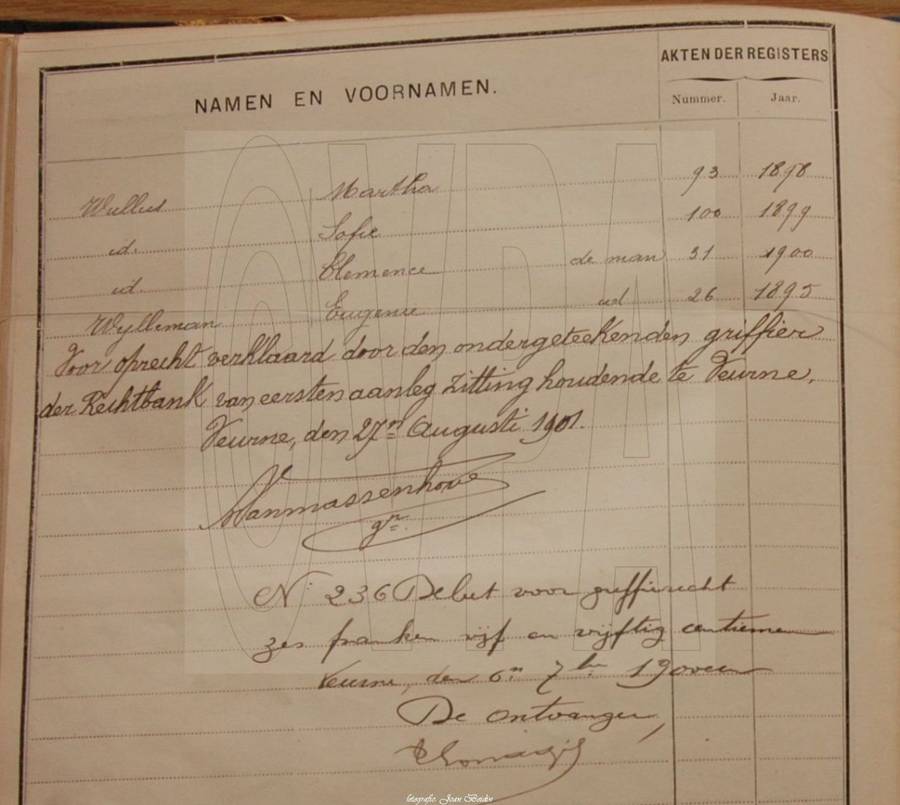 NAMEN EN VOORNAMEN. AKTEN DER REGISTERS
Nummer. Jaar.
Wullus Martha 93 1898
id. Sofie 100 1899
id. Clemence de man 31 1900
Wylleman Eugenie id 26 1895
Voor oprecht verklaard door den ondergeteekenden griffier
der Rechtbank van eersten aanleg zitting houdende te Veurne.
Veurne, den 27n Augusti 1901.
Vanmassenhove
gr.
N: 236 Debet voor griffierecht
zes franken vijf en vijftig centiemen
Veurne, den 6n 7ber 19
De ontvanger,
fotografie: Joan
CVPA